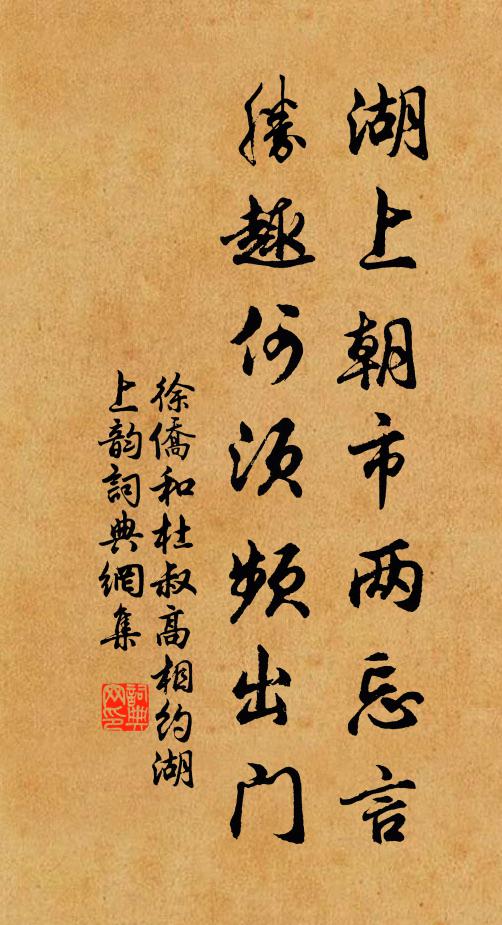 湖上朝市两忘言
勝趣何须頻出门
徐僑和杜叔高相约湖
上韵詞典網集
詞典
网印